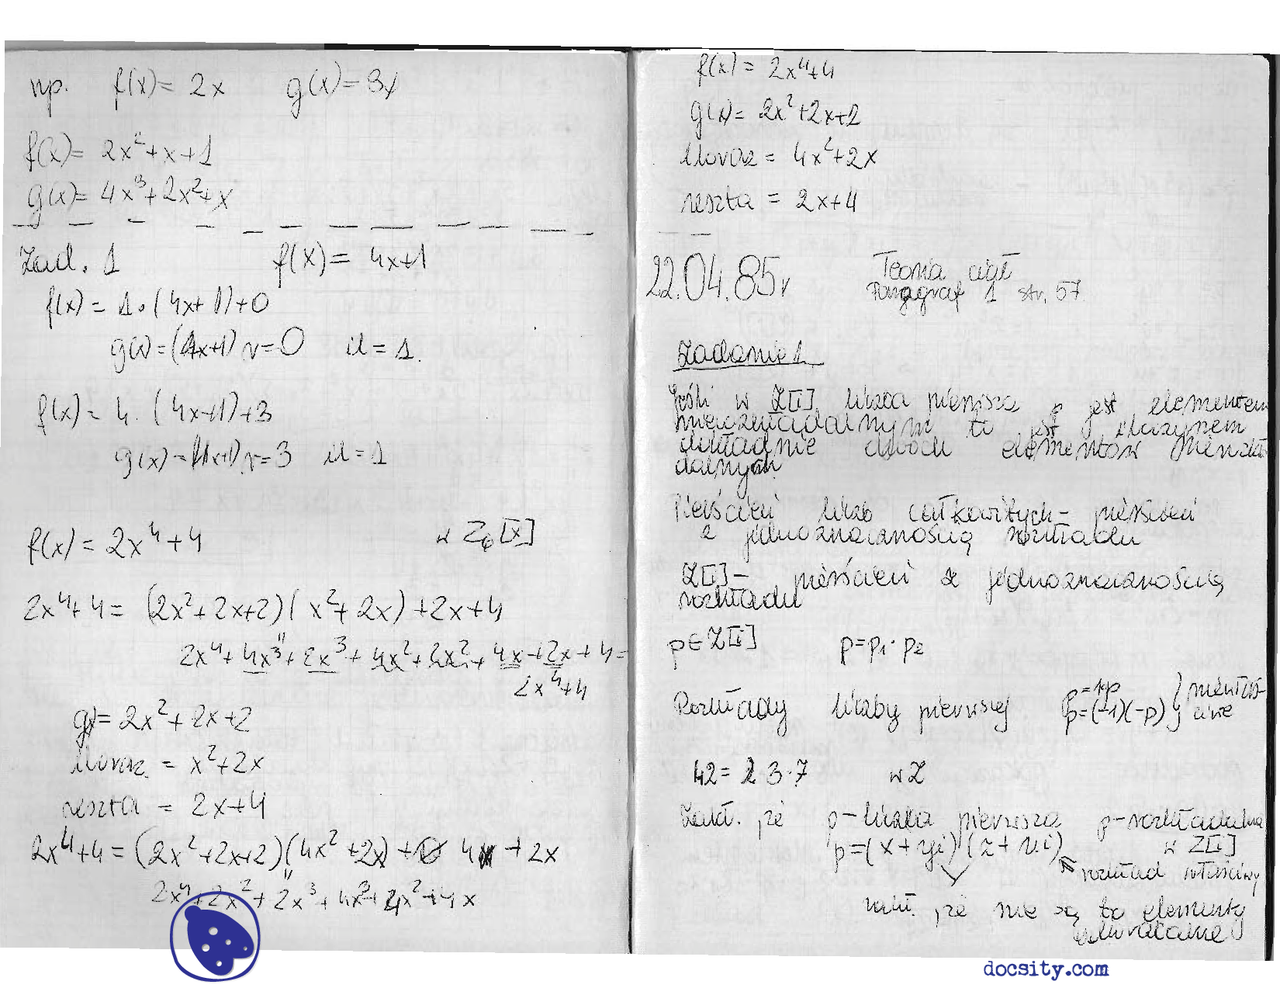 np. f(x) = 2x g(x) = 3x
f(x) = 2x² + x + 1
g(x) = 4x³ + 2x² + x
Zad. 1 f(x) = 4x+1
f(x) = 1·(4x+1)+0
g(x) = (4x+1) r=0 = 1
f(x) = 4·(4x+1)+3
g(x) = (4x+1) r=3 = 1
f(x) = 2x⁴+4 w Z₆[x]
2x⁴+4 = (2x²+2x+2)(x²+2x)+2x+4
2x⁴+4x³+2x³+4x²+2x²+4x+2x+4=
2x⁴+4
g(x)= 2x²+2x+2
iloraz = x²+2x
reszta = 2x+4
2x⁴+4 = (2x²+2x+2)(4x²+2x)+ 4 + 2x
f(x) = 2x⁴+4
g(x) = 2x²+2x+2
iloraz = 4x²+2x
reszta = 2x+4
22.04.85r Teoria ciał
Paragraf 1 str. 57
Zadanie 1.
Jeśli w Z[i] liczba pierwsza p jest elementem
to jest iloczynem
dokładnie dwóch elementów
Pierścień liczb całkowitych - pierścień
z jednoznacznością rozkładu
Z[i] - pierścień z jednoznacznością
rozkładu
p∈Z[i] p=p₁·p₂
Rozkłady liczby pierwszej p=1·p
p=(-1)(-p)
42=2·3·7 w Z
Zakł., że p-liczba pierwsza p-rozkładalna
p=(x+yi)(z+ui) w Z[i]
rozkład właściwy
że nie są to elementy